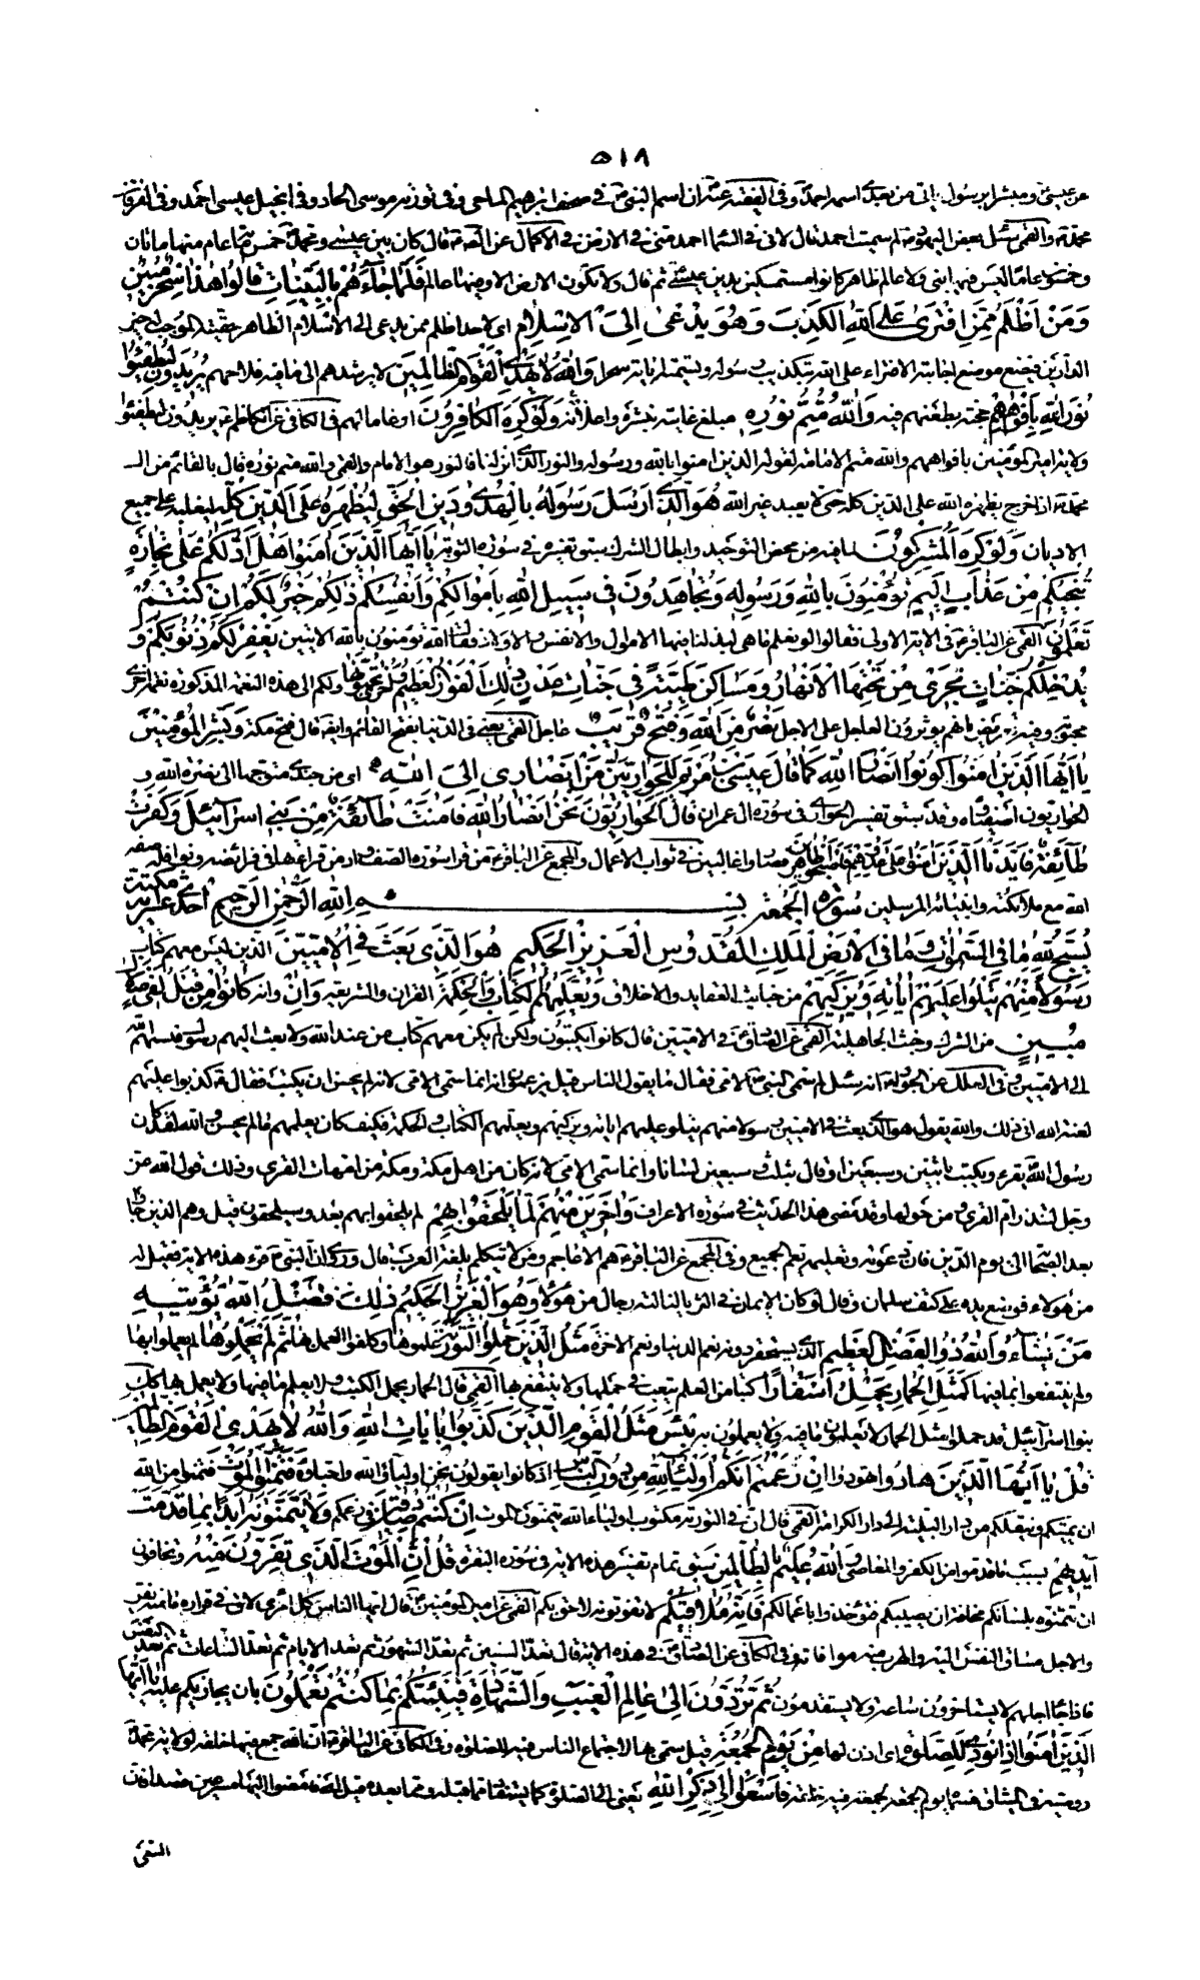 ٥١٨
عن عيسى ومبشرا برسول ياتى من بعدى اسمه احمد وفى الفقيه عنه ان اسم النبى فى صحف ابرهيم الماحى وفى تورية موسى الحاد وفى انجيل عيسى احمد وفى الفرقان
محمد والقمى سئل بعض اليهود لم سميت احمد قال لانى فى السماء احمد منى فى الارض فى الاكمال عن قال كان بين عيسى ومحمد خمس مأة عام منها مأتان
وخمسون عاما ليس فيها نبى ولا عالم ظاهر كانوا مستمسكين بدين عيسى ثم قال ولا تكون الارض الا وفيها عالم فَلَمَّا جَاءَهُمْ بِالْبَيِّنَاتِ قَالُوا هَذَا سِحْرٌ مُبِينٌ
وَمَنْ أَظْلَمُ مِمَّنِ افْتَرَى عَلَى اللهِ الْكَذِبَ وَهُوَ يُدْعَى إِلَى الْإِسْلَامِ اى لا احد اظلم ممن يدعى الى الاسلام الظاهر حقيته الموجب له خير
الدارين فيضع موضع اجابته الافتراء على الله بتكذيب رسوله وتسميته اياته سحرا وَاللهُ لَا يَهْدِي الْقَوْمَ الظَّالِمِينَ لا يرشدهم الى ما فيه فلاحهم يُرِيدُونَ لِيُطْفِئُوا
نُورَ اللهِ بِأَفْوَاهِهِمْ بطعنهم فيه وَاللهُ مُتِمُّ نُورِهِ مبلغ غايته بنشره واعلائه وَلَوْ كَرِهَ الْكَافِرُونَ ارغاما لهم فى الكافى عن الكاظم يريدون ليطفئوا
ولاية امير المؤمنين بافواههم والله متم الامامة لقوله الذين امنوا بالله ورسوله والنور الذى انزلنا فالنور هو الامام والقمى والله متم نوره قال بالقائم من ال
محمد اذا خرج يظهره الله على الدين كله حتى لا يعبد غير الله هُوَ الَّذِي أَرْسَلَ رَسُولَهُ بِالْهُدَى وَدِينِ الْحَقِّ لِيُظْهِرَهُ عَلَى الدِّينِ كُلِّهِ ليغلبه على جميع
الاديان وَلَوْ كَرِهَ الْمُشْرِكُونَ لما فيه من محض التوحيد وابطال الشرك سبق تفسيره فى سورة التوبة يَا أَيُّهَا الَّذِينَ آمَنُوا هَلْ أَدُلُّكُمْ عَلَى تِجَارَةٍ
تُنْجِيكُمْ مِنْ عَذَابٍ أَلِيمٍ تُؤْمِنُونَ بِاللهِ وَرَسُولِهِ وَتُجَاهِدُونَ فِي سَبِيلِ اللهِ بِأَمْوَالِكُمْ وَأَنْفُسِكُمْ ذَلِكُمْ خَيْرٌ لَكُمْ إِنْ كُنْتُمْ
تَعْلَمُونَ القمى عن الباقر فى الاية الاولى فقالوا لو نعلم ما هى لبذلنا فيها الاموال والانفس والاولاد فقال الله تؤمنون بالله الايتين يَغْفِرْ لَكُمْ ذُنُوبَكُمْ وَ
يُدْخِلْكُمْ جَنَّاتٍ تَجْرِي مِنْ تَحْتِهَا الْأَنْهَارُ وَمَسَاكِنَ طَيِّبَةً فِي جَنَّاتِ عَدْنٍ ذَلِكَ الْفَوْزُ الْعَظِيمُ وَأُخْرَى تُحِبُّونَهَا ولكم الى هذه النعمة المذكورة نعمة اخرى
محبوبة وفيه تعريض بانهم يؤثرون العاجل على الاجل نَصْرٌ مِنَ اللهِ وَفَتْحٌ قَرِيبٌ عاجل القمى يعنى فى الدنيا بفتح القائم وايضا قال فتح مكة وَبَشِّرِ الْمُؤْمِنِينَ
يَا أَيُّهَا الَّذِينَ آمَنُوا كُونُوا أَنْصَارَ اللهِ كَمَا قَالَ عِيسَى بْنُ مَرْيَمَ لِلْحَوَارِيِّينَ مَنْ أَنْصَارِي إِلَى اللهِ اى من جندى متوجها الى نصرة الله و
الحواريون اصفياؤه وقد سبق تفسير الحوارى فى سورة ال عمران قَالَ الْحَوَارِيُّونَ نَحْنُ أَنْصَارُ اللهِ فَآمَنَتْ طَائِفَةٌ مِنْ بَنِي إِسْرَائِيلَ وَكَفَرَتْ
طَائِفَةٌ فَأَيَّدْنَا الَّذِينَ آمَنُوا عَلَى عَدُوِّهِمْ فَأَصْبَحُوا ظَاهِرِينَ فصاروا غالبين فى ثواب الاعمال والمجمع عن الباقر من قرأ سورة الصف وادمن قرائتها فى فرائضه ونوافله صفه
الله مع ملائكته وانبيائه المرسلين سُورَةُ الْجُمُعَةِ بِسْمِ اللهِ الرَّحْمٰنِ الرَّحِيمِ احدى عشرة اية مدنية
يُسَبِّحُ لِلهِ مَا فِي السَّمَوَاتِ وَمَا فِي الْأَرْضِ الْمَلِكِ الْقُدُّوسِ الْعَزِيزِ الْحَكِيمِ هُوَ الَّذِي بَعَثَ فِي الْأُمِّيِّينَ الذين ليس معهم كتاب
رَسُولًا مِنْهُمْ يَتْلُو عَلَيْهِمْ آيَاتِهِ وَيُزَكِّيهِمْ من خبائث العقايد والاخلاق وَيُعَلِّمُهُمُ الْكِتَابَ وَالْحِكْمَةَ القران والشريعة وَإِنْ وانه كَانُوا مِنْ قَبْلُ لَفِي ضَلَالٍ
مُبِينٍ من الشرك وخبث الجاهلية القمى عن الصادق فى الاميين قال كانوا يكتبون ولكن لم يكن معهم كتاب من عند الله ولا بعث اليهم رسول فنسبهم الله
الى الاميين وفى العلل عن الجواد انه سئل لم سمى النبى الامى فقال ما يقول الناس قيل يزعمون انه انما سمى الامى لانه لم يحسن ان يكتب فقال كذبوا عليهم
لعنة الله انى ذلك والله يقول هو الذى بعث فى الاميين رسولا منهم يتلو عليهم اياته ويزكيهم ويعلمهم الكتاب والحكمة فكيف كان يعلمهم ما لم يحسن والله لقد كان
رسول الله يقرء ويكتب باثنين وسبعين او قال بثلث وسبعين لسانا وانما سمى الامى لانه كان من اهل مكة ومكة من امهات القرى وذلك قول الله عز
وجل لتنذر ام القرى ومن حولها وقد مضى هذا الحديث فى سورة الاعراف وَآخَرِينَ مِنْهُمْ لَمَّا يَلْحَقُوا بِهِمْ لم يلحقوا بهم بعد وسيلحقون قيل وهم الذين جاؤا
بعد الصحابة الى يوم الدين فان دعوته وتعليمه تعم الجميع وفى المجمع عن الباقر هم الاعاجم ومن لا يتكلم بلغة العرب قال وروى ان النبى قرء هذه الاية فقيل له
من هؤلاء فوضع يده على كتف سلمان وقال لو كان الايمان فى الثريا لنالته رجال من هؤلاء وَهُوَ الْعَزِيزُ الْحَكِيمُ ذَلِكَ فَضْلُ اللهِ يُؤْتِيهِ
مَنْ يَشَاءُ وَاللهُ ذُو الْفَضْلِ الْعَظِيمِ الذى يستحقر دونه نعم الدنيا ونعم الاخرة مَثَلُ الَّذِينَ حُمِّلُوا التَّوْرَاةَ علموها وكلفوا العمل بها ثُمَّ لَمْ يَحْمِلُوهَا لم يعملوا بها
ولم ينتفعوا بما فيها كَمَثَلِ الْحِمَارِ يَحْمِلُ أَسْفَارًا كتبا من العلم يتعب فى حملها ولا ينتفع بها القمى قال الحمار يحمل الكتب ولا يعلم ما فيها ولا يعمل بها كذلك
بنو اسرائيل قد حملوا مثل الحمار لا يعلمون ما فيه ولا يعملون به بِئْسَ مَثَلُ الْقَوْمِ الَّذِينَ كَذَّبُوا بِآيَاتِ اللهِ وَاللهُ لَا يَهْدِي الْقَوْمَ الظَّالِمِينَ
قُلْ يَا أَيُّهَا الَّذِينَ هَادُوا تهودوا إِنْ زَعَمْتُمْ أَنَّكُمْ أَوْلِيَاءُ لِلهِ مِنْ دُونِ النَّاسِ اذ كانوا يقولون نحن اولياء الله واحباؤه فَتَمَنَّوُا الْمَوْتَ فتمنوا من الله
ان يميتكم وينقلكم من دار البلية الى دار الكرامة القمى قال ان فى التورية مكتوب اولياء الله يتمنون الموت إِنْ كُنْتُمْ صَادِقِينَ فى زعمكم وَلَا يَتَمَنَّوْنَهُ أَبَدًا بِمَا قَدَّمَتْ
أَيْدِيهِمْ بسبب ما قدموا من الكفر والمعاصى وَاللهُ عَلِيمٌ بِالظَّالِمِينَ سبق تمام تفسير هذه الاية فى سورة البقرة قُلْ إِنَّ الْمَوْتَ الَّذِي تَفِرُّونَ مِنْهُ وتخافون
ان تتمنوه بلسانكم مخافة ان يصيبكم فتؤخذوا باعمالكم فَإِنَّهُ مُلَاقِيكُمْ لا تفوتونه لاحق بكم القمى عن امير المؤمنين قال ايها الناس كل امرئ لاق فى فراره ما منه يفر
والاجل مساق النفس اليه والهرب منه موافاته وفى الكافى عن الصادق فى هذه الاية قال تعد السنين ثم تعد الشهور ثم تعد الايام ثم تعد الساعات ثم تعد النفس
فاذا جاء اجلهم لا يستاخرون ساعة ولا يستقدمون ثُمَّ تُرَدُّونَ إِلَى عَالِمِ الْغَيْبِ وَالشَّهَادَةِ فَيُنَبِّئُكُمْ بِمَا كُنْتُمْ تَعْمَلُونَ بان يجازيكم عليه يَا أَيُّهَا
الَّذِينَ آمَنُوا إِذَا نُودِيَ لِلصَّلَوةِ اى اذن لها مِنْ يَوْمِ الْجُمُعَةِ قيل سمى بها لاجتماع الناس فيه للصلوة وفى الكافى عن الباقر ان الله جمع فيها خلقه لولاية محمد
ووصيه فى الميثاق فسماه يوم الجمعة لجمعه فيه خلقه فَاسْعَوْا إِلَى ذِكْرِ اللهِ يعنى الى الصلوة كما يستفاد مما قبله ومما بعده قيل فامضوا اليها مسرعين قصدا فان
السعى